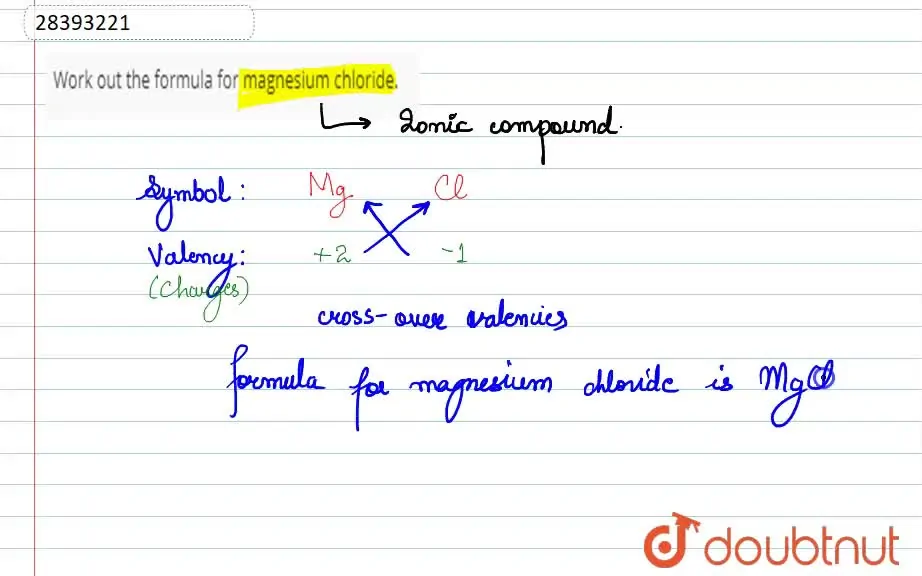 28393221
Work out the formula for magnesium chloride.
Ionic compound.
Symbol: Mg Cl
Valency: +2 -1
(Charges)
cross-over valencies
formula for magnesium chloride is MgCl
doubtnut